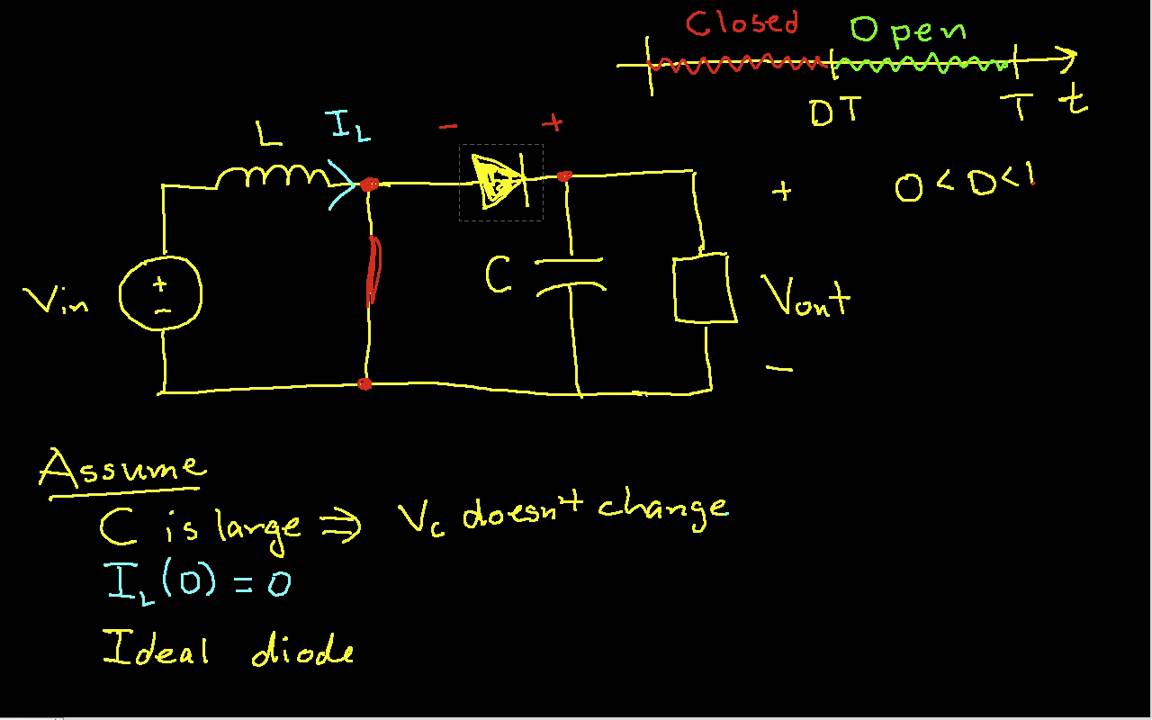 Closed Open
DT T t
L I_L - +
+ 0 < D < 1
+
-
C
Vin
Vout
-
Assume
C is large ⇒ Vc doesn't change
I_L(0) = 0
Ideal diode